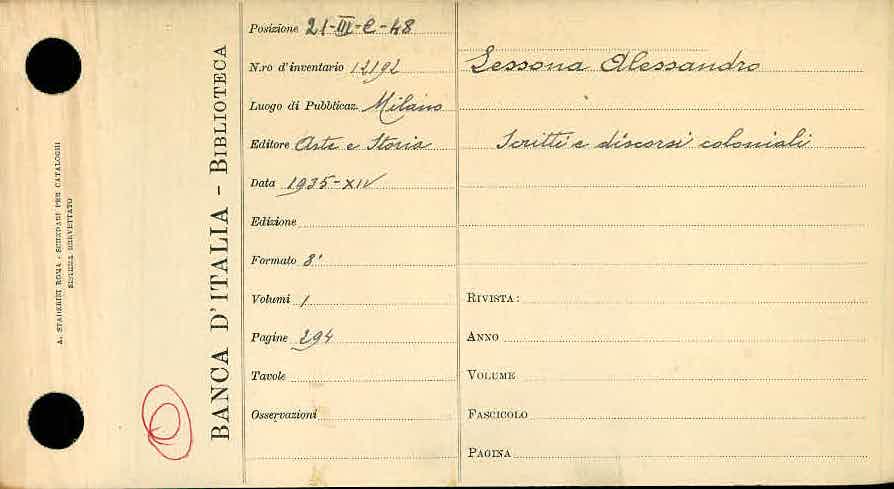 A. STADERINI ROMA - SCHEDARI PER CATALOGHI
SISTEMA BREVETTATO
BANCA D'ITALIA - BIBLIOTECA
Posizione 21-III-C-48
N.ro d'inventario 12192
Luogo di Pubblicaz. Milano
Editore Arte e Storia
Data 1935-XIV
Edizione
Formato 8°
Volumi 1
Pagine 294
Tavole
Osservazioni
Lessona Alessandro
Scritti e discorsi coloniali
RIVISTA:
ANNO
VOLUME
FASCICOLO
PAGINA